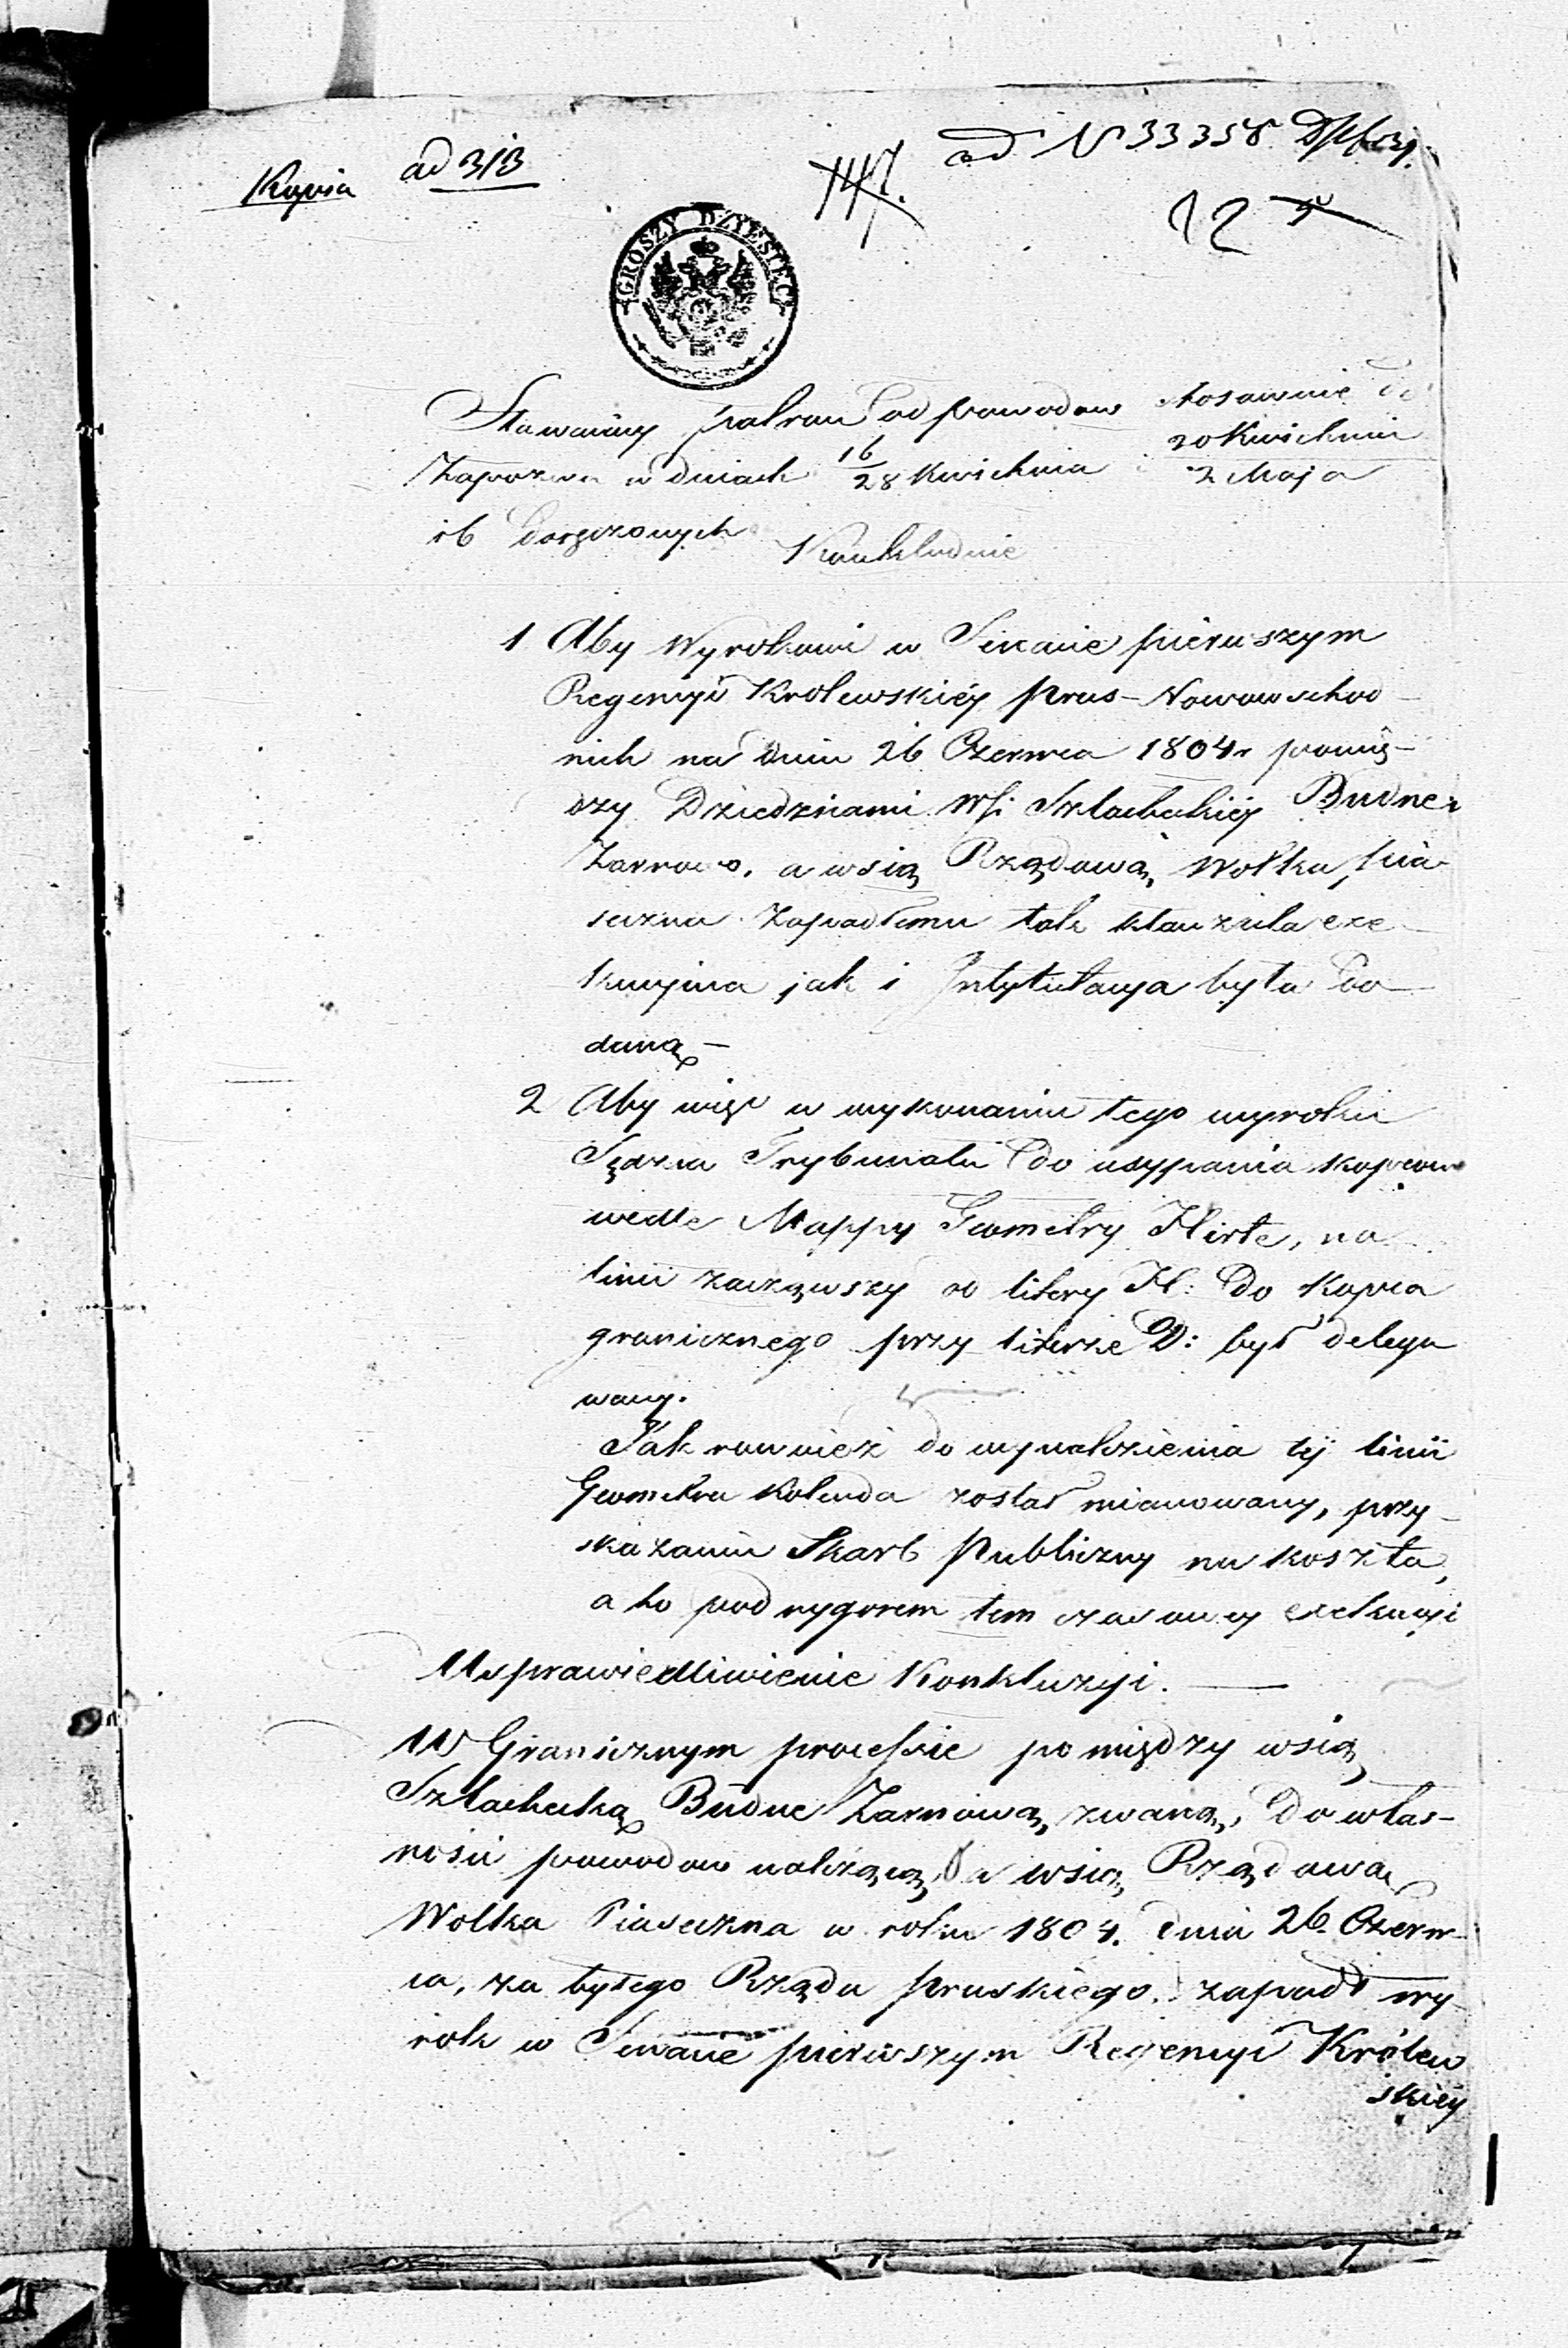 Kopia ad 313 ad N 33358
12
GROSZY DZIESIĘĆ
Stawaiący patron od powodow stosownie do
Zapozwu w dniach 16/28 Kwietnia i 20 Kwietnia/2 Maja
rb doręczonych Konkludnie
1 Aby Wyrokowi w Senacie pierwszym
Regencyi Krolewskiéy Prus-Nowowschod-
nich na dniu 26 Czerwca 1804r pomię-
dzy Dziedzicami Wsi Szlacheckiéy Budne
Zarnowo, a wsią Rządową Wolka, Pia-
seczna zapadłemu tak klauzula exe-
kucyjna jak i Intytulacya była do
daną —
2 Aby więc w wykonaniu tego wyroku
Sędzia Trybunału do usypania kopcow
wedle Mappy Geometry Hirte, na
linii zacząwszy od litery H: do Kopca
granicznego przy literze D: był delego
wany.
Jak rownież do wynalezienia téj linii
Geometra Kolenda został mianowany, przy-
skazaniu Skarb Publiczny na koszta,
a to pod rygorem tem czasowey exekucyi
Usprawiedliwienie Konkluzyi. —
W Granicznym processie pomiędzy wsią
Szlachecką Budne Zarnową zwaną, do włas-
nosci powodow należącą, a wsią Rządową
Wolka Piaseczna w roku 1804. dnia 26. Czerw-
ca, za byłego Rządu Pruskiego, zapadł wy-
rok w Senacie pierwszym Regencyi Królew
skiéy